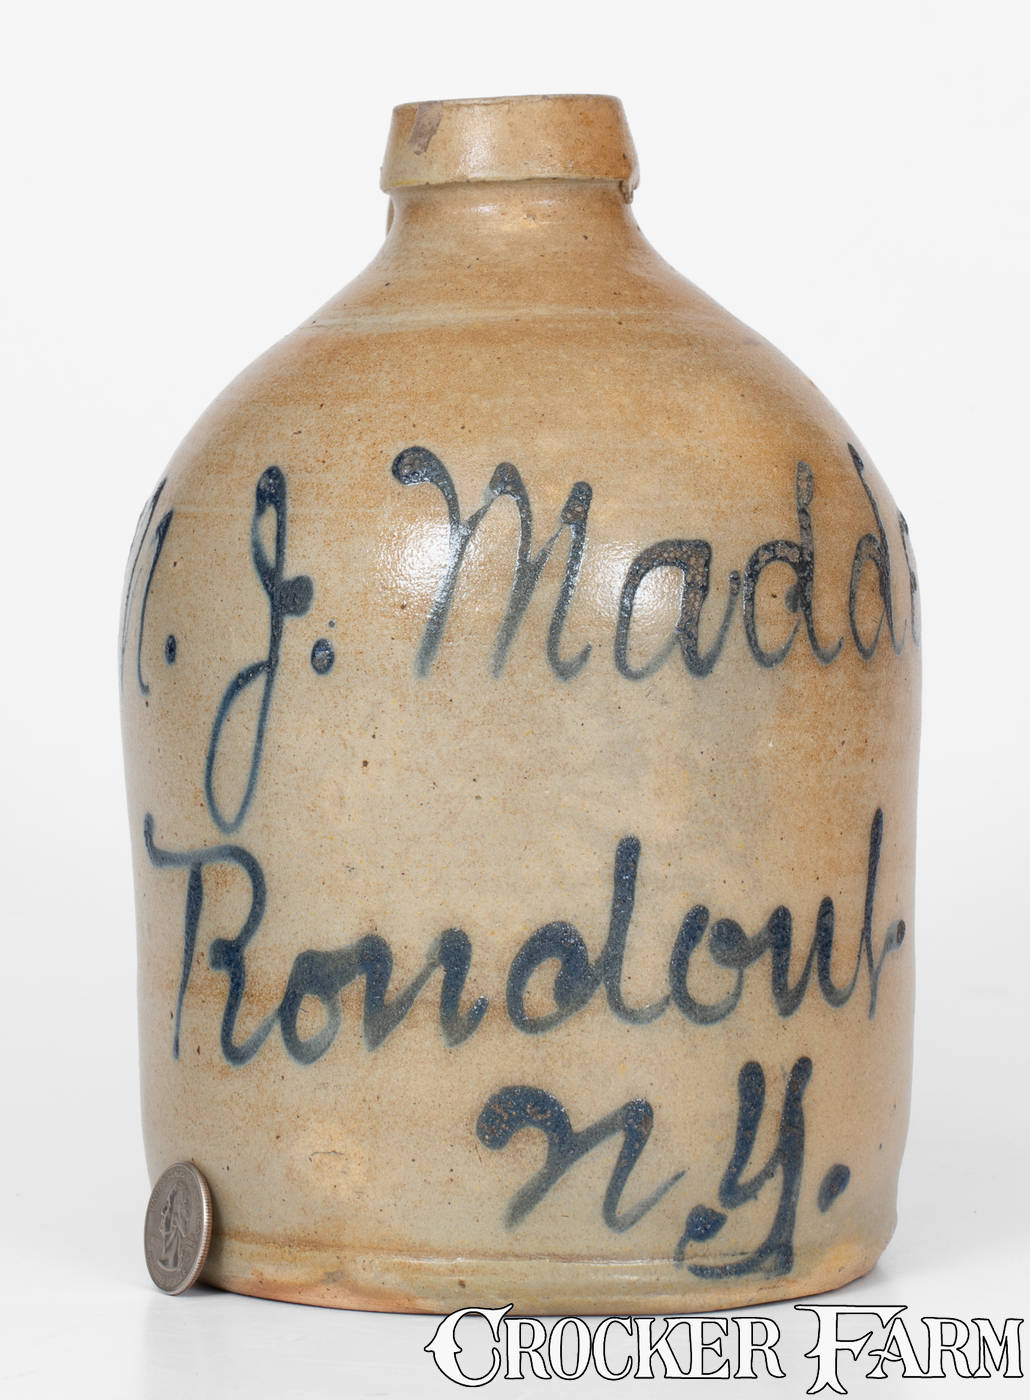 J. Madd
Rondout.
N.Y.
CROCKER FARM